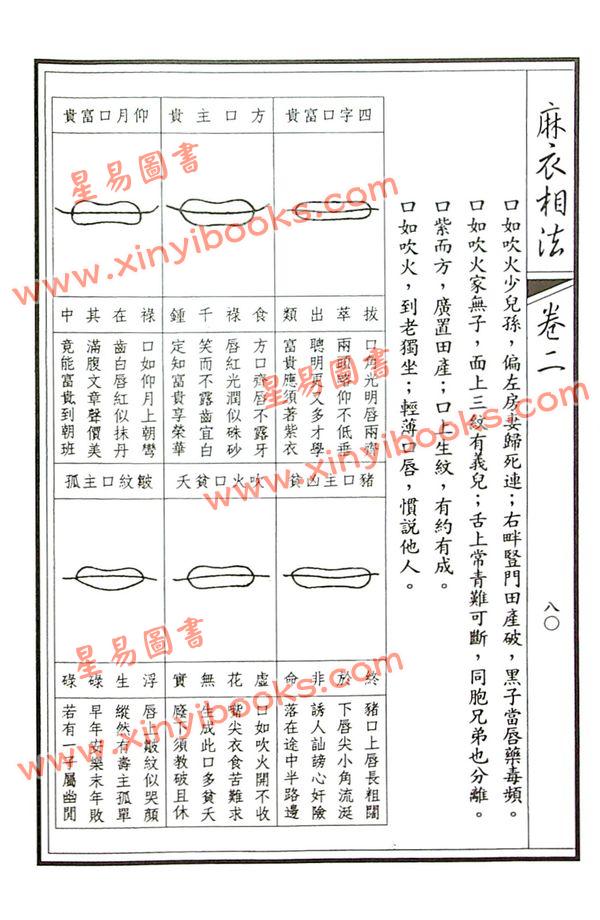 麻衣相法
卷二
八〇
口如吹火少兒孫，偏左房妻歸死連；右畔豎門田產破，黑子當唇藥毒頻。
口如吹火家無子，面上三紋有義兒；舌上常青難可斷，同胞兄弟也分離。
口紫而方，廣置田產；口上生紋，有約有成。
口如吹火，到老獨坐；輕薄口唇，慣說他人。
四字口富貴
拔萃出類
口角光明唇兩齊
兩頭略仰不低垂
聰明更又多才學
富貴應須著紫衣
方口主貴
食祿千鍾
方口齊唇不露牙
唇紅光潤似硃砂
笑而不露齒宜白
定知富貴享榮華
仰月口富貴
祿在其中
口如仰月上朝彎
齒白唇紅似抹丹
滿腹文章聲價美
竟能富貴到朝班
豬口主凶貧
終於非命
豬口上唇長粗闊
下唇尖小角流涎
誘人訕謗心奸險
落在途中半路邊
吹火口貧夭
虛花無實
口如吹火開不收
觜尖衣食苦難求
生成此口多貧夭
廢下須教破且休
皺紋口主孤
浮生碌碌
唇皺紋似哭顏
縱然有壽主孤單
早年安樂末年敗
若有一子屬幽閒
星易圖書
www.xinyibooks.com
星易圖書
www.xinyibooks.com
星易圖書
www.xinyibooks.com